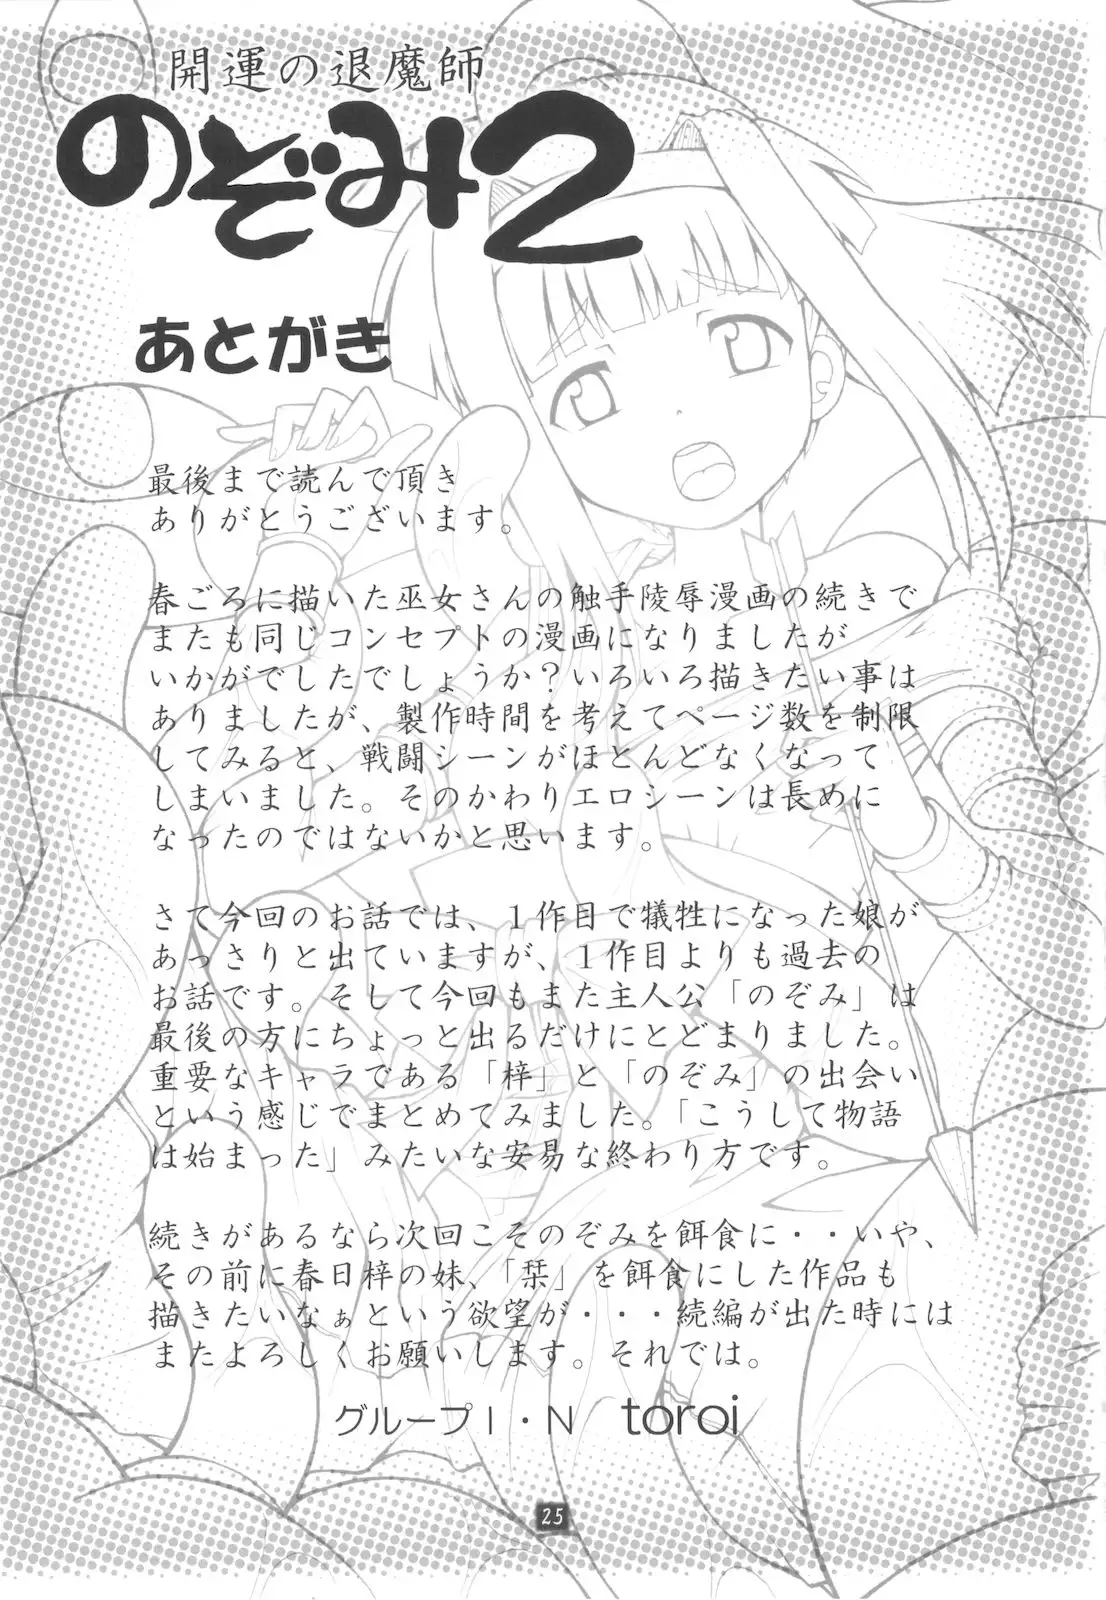 開運の退魔師
のぞみ2
あとがき
最後まで読んで頂き
ありがとうございます。
春ごろに描いた巫女さんの触手陵辱漫画の続きで
またも同じコンセプトの漫画になりましたが
いかがでしたでしょうか？いろいろ描きたい事は
ありましたが、製作時間を考えてページ数を制限
してみると、戦闘シーンがほとんどなくなって
しまいました。そのかわりエロシーンは長めに
なったのではないかと思います。
さて今回のお話では、１作目で犠牲になった娘が
あっさりと出ていますが、１作目よりも過去の
お話です。そして今回もまた主人公「のぞみ」は
最後の方にちょっと出るだけにとどまりました。
重要なキャラである「梓」と「のぞみ」の出会い
という感じでまとめてみました。「こうして物語
は始まった」みたいな安易な終わり方です。
続きがあるなら次回こそのぞみを餌食に・・いや、
その前に春日梓の妹、「栞」を餌食にした作品も
描きたいなぁという欲望が・・・続編が出た時には
またよろしくお願いします。それでは。
グループＩ・Ｎ　toroi
25